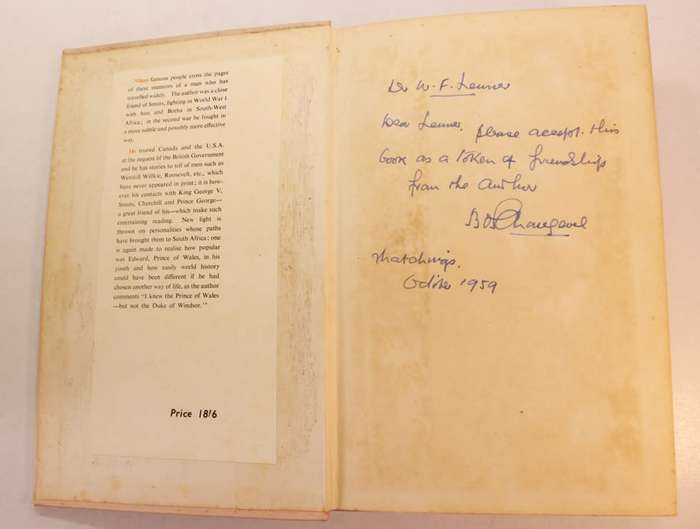 Many famous people cross the pages
of these memoirs of a man who has
travelled widely. The author was a close
friend of Smuts, fighting in World War I
with him and Botha in South-West
Africa; in the second war he fought in
a more subtle and possibly more effective
way.
He toured Canada and the U.S.A.
at the request of the British Government
and he has stories to tell of men such as
Wendell Willkie, Roosevelt, etc., which
have never appeared in print; it is how-
ever his contacts with King George V,
Smuts, Churchill and Prince George—
a great friend of his—which make such
entertaining reading. New light is
thrown on personalities whose paths
have brought them to South Africa; one
is again made to realise how popular
was Edward, Prince of Wales, in his
youth and how easily world history
could have been different if he had
chosen another way of life, as the author
comments "I knew the Prince of Wales
—but not the Duke of Windsor."
Price 18/6
Dr W. F.
Dear please accept this
book as a token of friendship
from the author
Thatchings.
October 1959